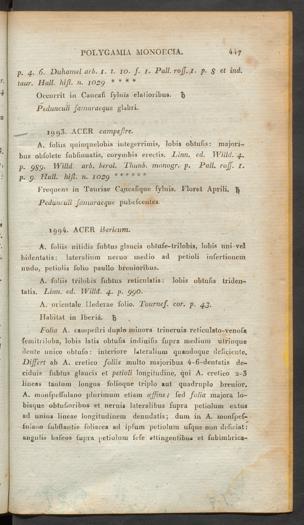 POLYGAMIA MONOECIA. 447
p. 4. 6. Duhamel arb. 1. t. 10. f. 1. Pall. ross. 1. p. 8 et ind.
taur. Hall. hist. n. 1029 * * * *
Occurrit in Caucasi sylvis elatioribus. ♄
Pedunculi samaraeque glabri.
1993. ACER campestre.
A. foliis quinquelobis integerrimis, lobis obtusis: majori-
bus obsolete subsinuatis, corymbis erectis. Linn. ed. Willd. 4.
p. 989. Willd. arb. berol. Thunb. monogr. p. Pall. ross. 1.
p. 9. Hall. hist. n. 1029 * * * * * *
Frequens in Tauriae Caucasique sylvis. Floret Aprili. ♄
Pedunculi samaraeque pubescentes.
1994. ACER ibericum.
A. foliis nitidis subtus glaucis obtuse-trilobis, lobis uni-vel
bidentatis: lateralium nervo medio ad petioli insertionem
nudo, petiolis folio paullo brevioribus.
A. foliis trilobis subtus reticulatis: lobis obtusis triden-
tatis. Linn. ed. Willd. 4. p. 990.
A. orientale Hederae folio. Tournef. cor. p. 43.
Habitat in Iberia. ♄
Folia A. campestri duplo minora trinervia reticulato-venosa
semitriloba, lobis latis obtusis indivisis supra medium utrinque
dente unico obtuso: interiore lateralium quandoque deficiente.
Differt ab A. cretico foliis multo majoribus 4-6-dentatis de-
ciduis subtus glaucis et petioli longitudine, qui A. cretico 2-3
lineas tantum longus folioque triplo aut quadruplo brevior.
A. monspessulano plurimum etiam affine; sed folia majora lo-
bisque obtusioribus et nervis lateralibus supra petiolum extus
ad unius lineae longitudinem denudatis; dum in A. monspes-
sulano substantia foliacea ad ipsum petiolum usque non deficiat:
angulis baseos supra petiolum sese attingentibus et subimbrica-